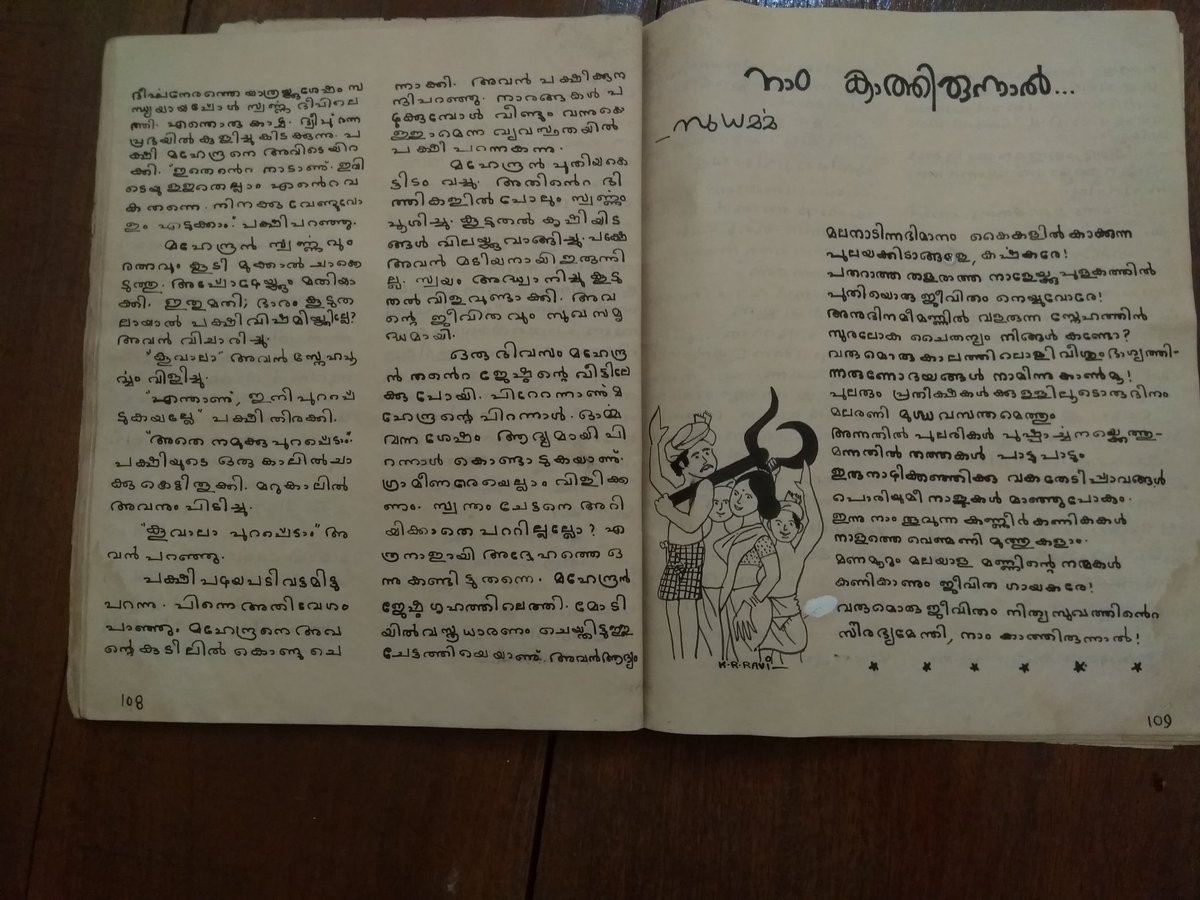 ദീർഘനേരത്തെ യാത്രയ്ക്കുശേഷം സ
ന്ധ്യയായപ്പോൾ സ്വർണ്ണ ദ്വീപിലെ
ത്തി. എന്തൊരു കാഴ്ച. ദ്വീപ്
പ്രഭയിൽ കുളിച്ചു കിടക്കുന്നു. പ
ക്ഷി മഹേന്ദ്രനെ അവിടെയിറ
ക്കി. "ഇതെൻെറ നാടാണ്. ഇവി
ടെയുള്ളതെല്ലാം എൻെറ വ
ക തന്നെ. നിനക്കു വേണ്ടുവോ
ളം എടുക്കാം." പക്ഷി പറഞ്ഞു.
മഹേന്ദ്രൻ സ്വർണ്ണവും
രത്നവും കൂടി മുക്കാൽ ചാക്കെ
ടുത്തു. അപ്പോഴേയ്ക്കും മതിയാ
ക്കി. ഇതുമതി; ഭാരം കൂടുത
ലായാൽ പക്ഷി വിഷമിയ്ക്കില്ലേ?
അവൻ വിചാരിച്ചു.
"കൂവാലാ" അവൻ സ്നേഹപൂ
ർവ്വം വിളിച്ചു.
"എന്താണ്, ഇനി പുറപ്പെ
ടുകയല്ലേ" പക്ഷി തിരക്കി.
"അതെ നമുക്കു പുറപ്പെടാം."
പക്ഷിയുടെ ഒരു കാലിൽ ചാ
ക്കു കെട്ടിതൂക്കി. മറുകാലിൽ
അവനും പിടിച്ചു.
"കൂവാലാ പുറപ്പെടാം" അ
വൻ പറഞ്ഞു.
പക്ഷി പഴയപടി വട്ടമിട്ടു
പറന്നു. പിന്നെ അതിവേഗം
പാഞ്ഞു. മഹേന്ദ്രനെ അവ
ൻെറ കുടിലിൽ കൊണ്ടു ചെ
ന്നാക്കി. അവൻ പക്ഷിക്കു ന
ന്ദിപറഞ്ഞു. നാരങ്ങകൾ പ
ഴുക്കുമ്പോൾ വീണ്ടും വന്നുകൊ
ള്ളാമെന്ന വ്യവസ്ഥയിൽ
പക്ഷി പറന്നകന്നു.
മഹേന്ദ്രൻ പുതിയ കെ
ട്ടിടം വച്ചു. അതിൻെറ ഭി
ത്തികളിൽ പോലും സ്വർണ്ണം
പൂശിച്ചു. കൂടുതൽ കൃഷിയിട
ങ്ങൾ വിലയ്ക്കു വാങ്ങിച്ചു. പക്ഷേ
അവൻ മടിയനായി ഇരുന്നി
ല്ല. സ്വയം അദ്ധ്വാനിച്ചു കൂടു
തൽ വിളവുണ്ടാക്കി. അവ
ൻെറ ജീവിതവും സുഖസമൃ
ദ്ധമായി.
ഒരു ദിവസം മഹേന്ദ്ര
ൻ തൻെറ ജേഷ്ഠൻെറ വീട്ടിലേ
ക്കു പോയി. പിറേന്നാണ് മ
ഹേന്ദ്രൻെറ പിറന്നാൾ. ഓർമ്മ
വന്ന ശേഷം ആദ്യമായി പി
റന്നാൾ കൊണ്ടാടുകയാണ്.
ഗ്രാമീണരേയെല്ലാം വിളിക്ക
ണം. സ്വന്തം ചേട്ടനെ അറി
യിക്കാതെ പററില്ലല്ലോ? എ
ത്ര നാളായി അദ്ദേഹത്തെ ഒ
ന്നു കണ്ടിട്ടു തന്നെ. മഹേന്ദ്രൻ
ജേഷ്ഠ ഗൃഹത്തിലെത്തി. മോടി
യിൽ വസ്ത്രധാരണം ചെയ്തിട്ടുള്ള
ചേട്ടത്തിയെയാണ്. അവൻ ആദ്യം
108
നാം കാത്തിരുന്നാൽ...
മലനാടിന്നഭിമാനം കൈകളിൽ കാക്കുന്ന
പുലയക്കിടാങ്ങളേ, കർഷകരേ!
പതറാത്ത തളരാത്ത നാളേയ്ക്കു പുളകത്തിൽ
പുതിയൊരു ജീവിതം നെയ്യുവോരേ!
അനുദിനമീമണ്ണിൽ വളരുന്ന സ്നേഹത്തിൻ
സുരലോക ചൈതന്യം നിങ്ങൾ കണ്ടോ?
വരുമൊരു കാലത്തിലൊളി വീശും ഭാഗ്യത്തി-
ന്നരുണോദയങ്ങൾ നാമിന്നു കാൺമൂ!
പുലരും പ്രതീക്ഷകൾക്കുള്ളിലൂടൊരു ദിനം
മലരണി മുഗ്ദ്ധ വസന്തമെത്തും
അന്നതിൽ പുലരികൾ പുഷ്പാർച്ചനയ്ക്കെത്തു-
മന്നതിൽ തത്തകൾ പാട്ടു പാടും
ഇരുനാഴിക്കഞ്ഞിക്കു വക തേടി പാവങ്ങൾ
പൊരിയുമീ നാളുകൾ മാഞ്ഞുപോകും.
ഇന്നു നാം തൂവുന്ന കണ്ണീർ കണികകൾ
നാളത്തെ വെൺമണി മുത്തുകളാം.
മണമൂറും മലയാള മണ്ണിൻെറ നന്മകൾ
കണികാണും ജീവിത ഗായകരേ!
വരുമൊരു ജീവിതം നിത്യ സുഖത്തിൻെറ
സൗരഭ്യമേന്തി, നാം കാത്തിരുന്നാൽ!
K.R.RAVI
109